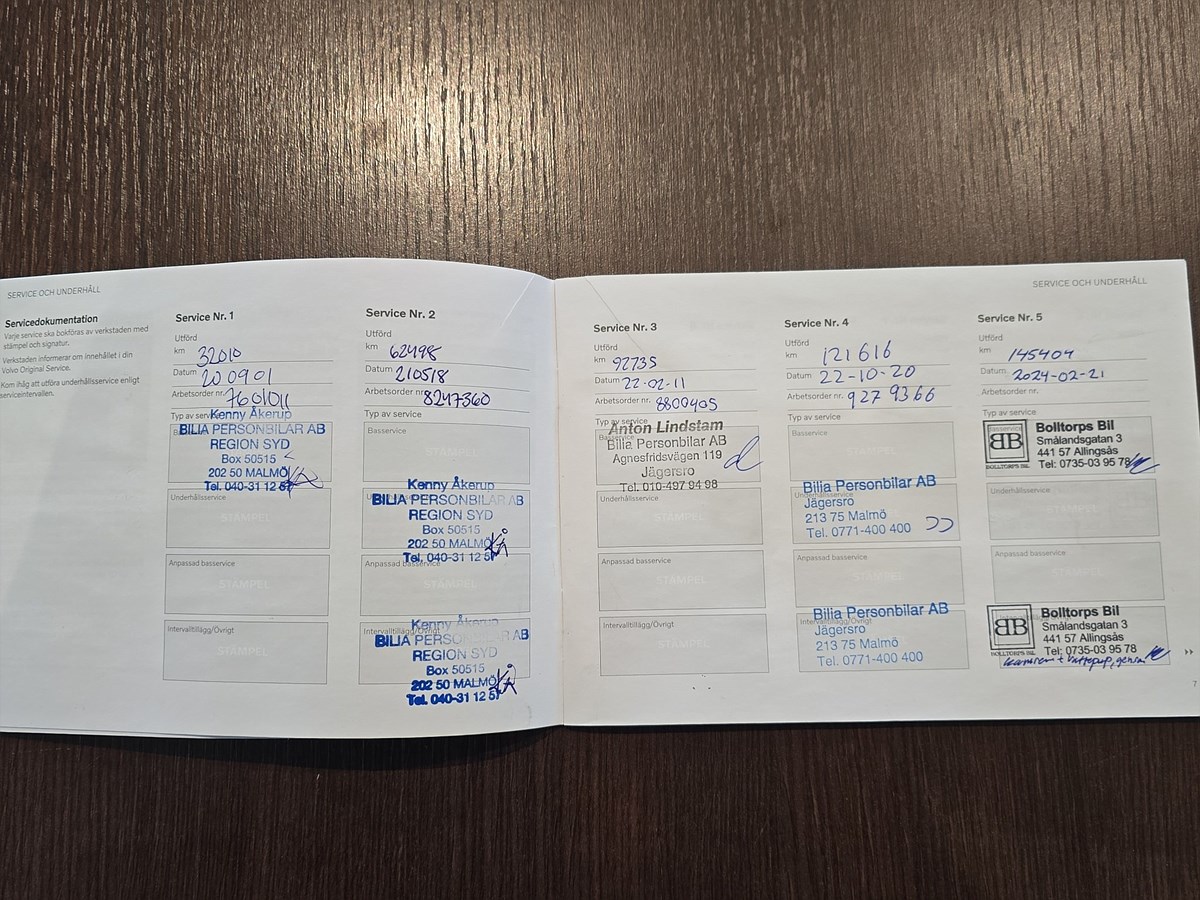 SERVICE OCH UNDERHÅLL
Servicedokumentation
Varje service ska bokföras av verkstaden med
stämpel och signatur.
Verkstaden informerar om innehållet i din
Volvo Original Service.
Kom ihåg att utföra underhållsservice enligt
serviceintervallen.
Service Nr. 1
Utförd
km 32010
Datum 200901
Arbetsorder nr. 7601011
Typ av service
Kenny Åkerup
BILIA PERSONBILAR AB
REGION SYD
Box 50515
202 50 MALMÖ
Tel. 040-31 12 57
Underhållsservice
STÄMPEL
Anpassad basservice
STÄMPEL
Intervalltillägg/Övrigt
STÄMPEL
Service Nr. 2
Utförd
km 62498
Datum 210518
Arbetsorder nr. 8247360
Typ av service
Basservice
STÄMPEL
Kenny Åkerup
BILIA PERSONBILAR AB
REGION SYD
Box 50515
202 50 MALMÖ
Tel. 040-31 12 57
Anpassad basservice
STÄMPEL
Intervalltillägg/Övrigt
Kenny Åkerup
BILIA PERSONBILAR AB
REGION SYD
Box 50515
202 50 MALMÖ
Tel. 040-31 12 57
SERVICE OCH UNDERHÅLL
Service Nr. 3
Utförd
km 92735
Datum 22-02-11
Arbetsorder nr. 8800405
Typ av service
Basservice
Anton Lindstam
Bilia Personbilar AB
Agnesfridsvägen 119
Jägersro
Tel. 010-497 94 98
Underhållsservice
STÄMPEL
Anpassad basservice
STÄMPEL
Intervalltillägg/Övrigt
STÄMPEL
Service Nr. 4
Utförd
km 121616
Datum 22-10-20
Arbetsorder nr. 927 9366
Typ av service
Basservice
STÄMPEL
Underhållsservice
Bilia Personbilar AB
Jägersro
213 75 Malmö
Tel. 0771-400 400
Anpassad basservice
STÄMPEL
Intervalltillägg/Övrigt
Bilia Personbilar AB
Jägersro
213 75 Malmö
Tel. 0771-400 400
Service Nr. 5
Utförd
km 145404
Datum 2024-02-21
Arbetsorder nr.
Typ av service
Basservice
BB
BOLLTORPS BIL
Bolltorps Bil
Smålandsgatan 3
441 57 Allingsås
Tel: 0735-03 95 78
Underhållsservice
STÄMPEL
Anpassad basservice
STÄMPEL
BB
BOLLTORPS BIL
Bolltorps Bil
Smålandsgatan 3
441 57 Allingsås
Tel: 0735-03 95 78
kamrem +
7